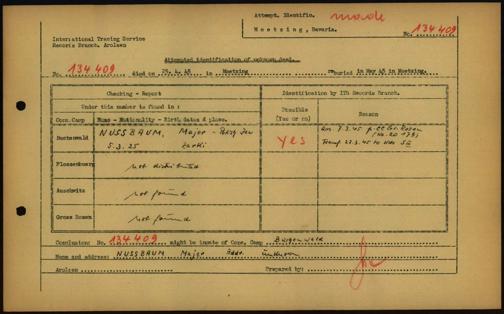 Attempt. Identific. made
Moetzing, Bavaria.
No. 134 409
International Tracing Service
Records Branch, Arolsen
Attempted identification of unknown dead.
No. 134 409 died on in Moetzing buried in May 45 in Moetzing.
Checking - Report
Identification by ITS Records Branch.
Under this number is found in :
Possible
(Yes or no)
Reason
Conc.Camp Name - Nationality - Birth, dates & place.
Buchenwald NUSSBAUM, Major - Jew
5.3.25 Zarki
Yes
Arr. 7.3.45
Transf 22.3.45 to
Flossenburg not distributed
Auschwitz not found
Gross Rosen not found
Conclusion: No. 134 409 might be inmate of Conc. Camp
Name and address: NUSSBAUM Major Addr. unknown
Arolsen Prepared by: